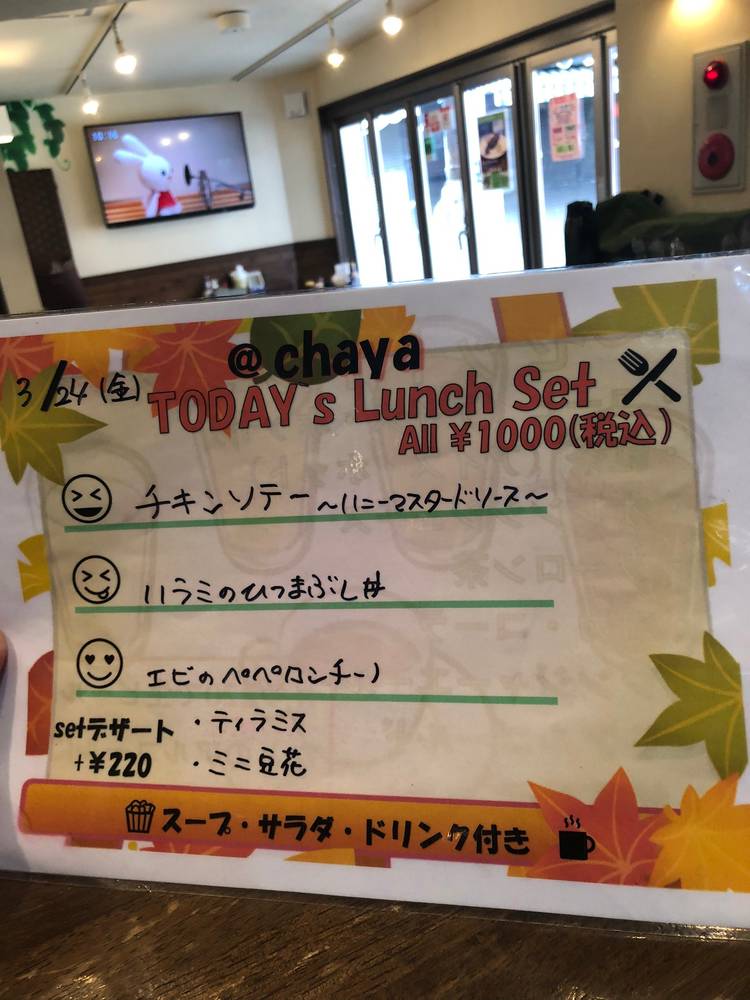 10:16
@chaya
3/24(金)
TODAY's Lunch Set
All ¥1000(税込)
チキンソテー〜ハニーマスタードソース〜
ハラミのひつまぶし丼
エビのペペロンチーノ
setデザート ・ティラミス
+¥220 ・ミニ豆花
スープ・サラダ・ドリンク付き